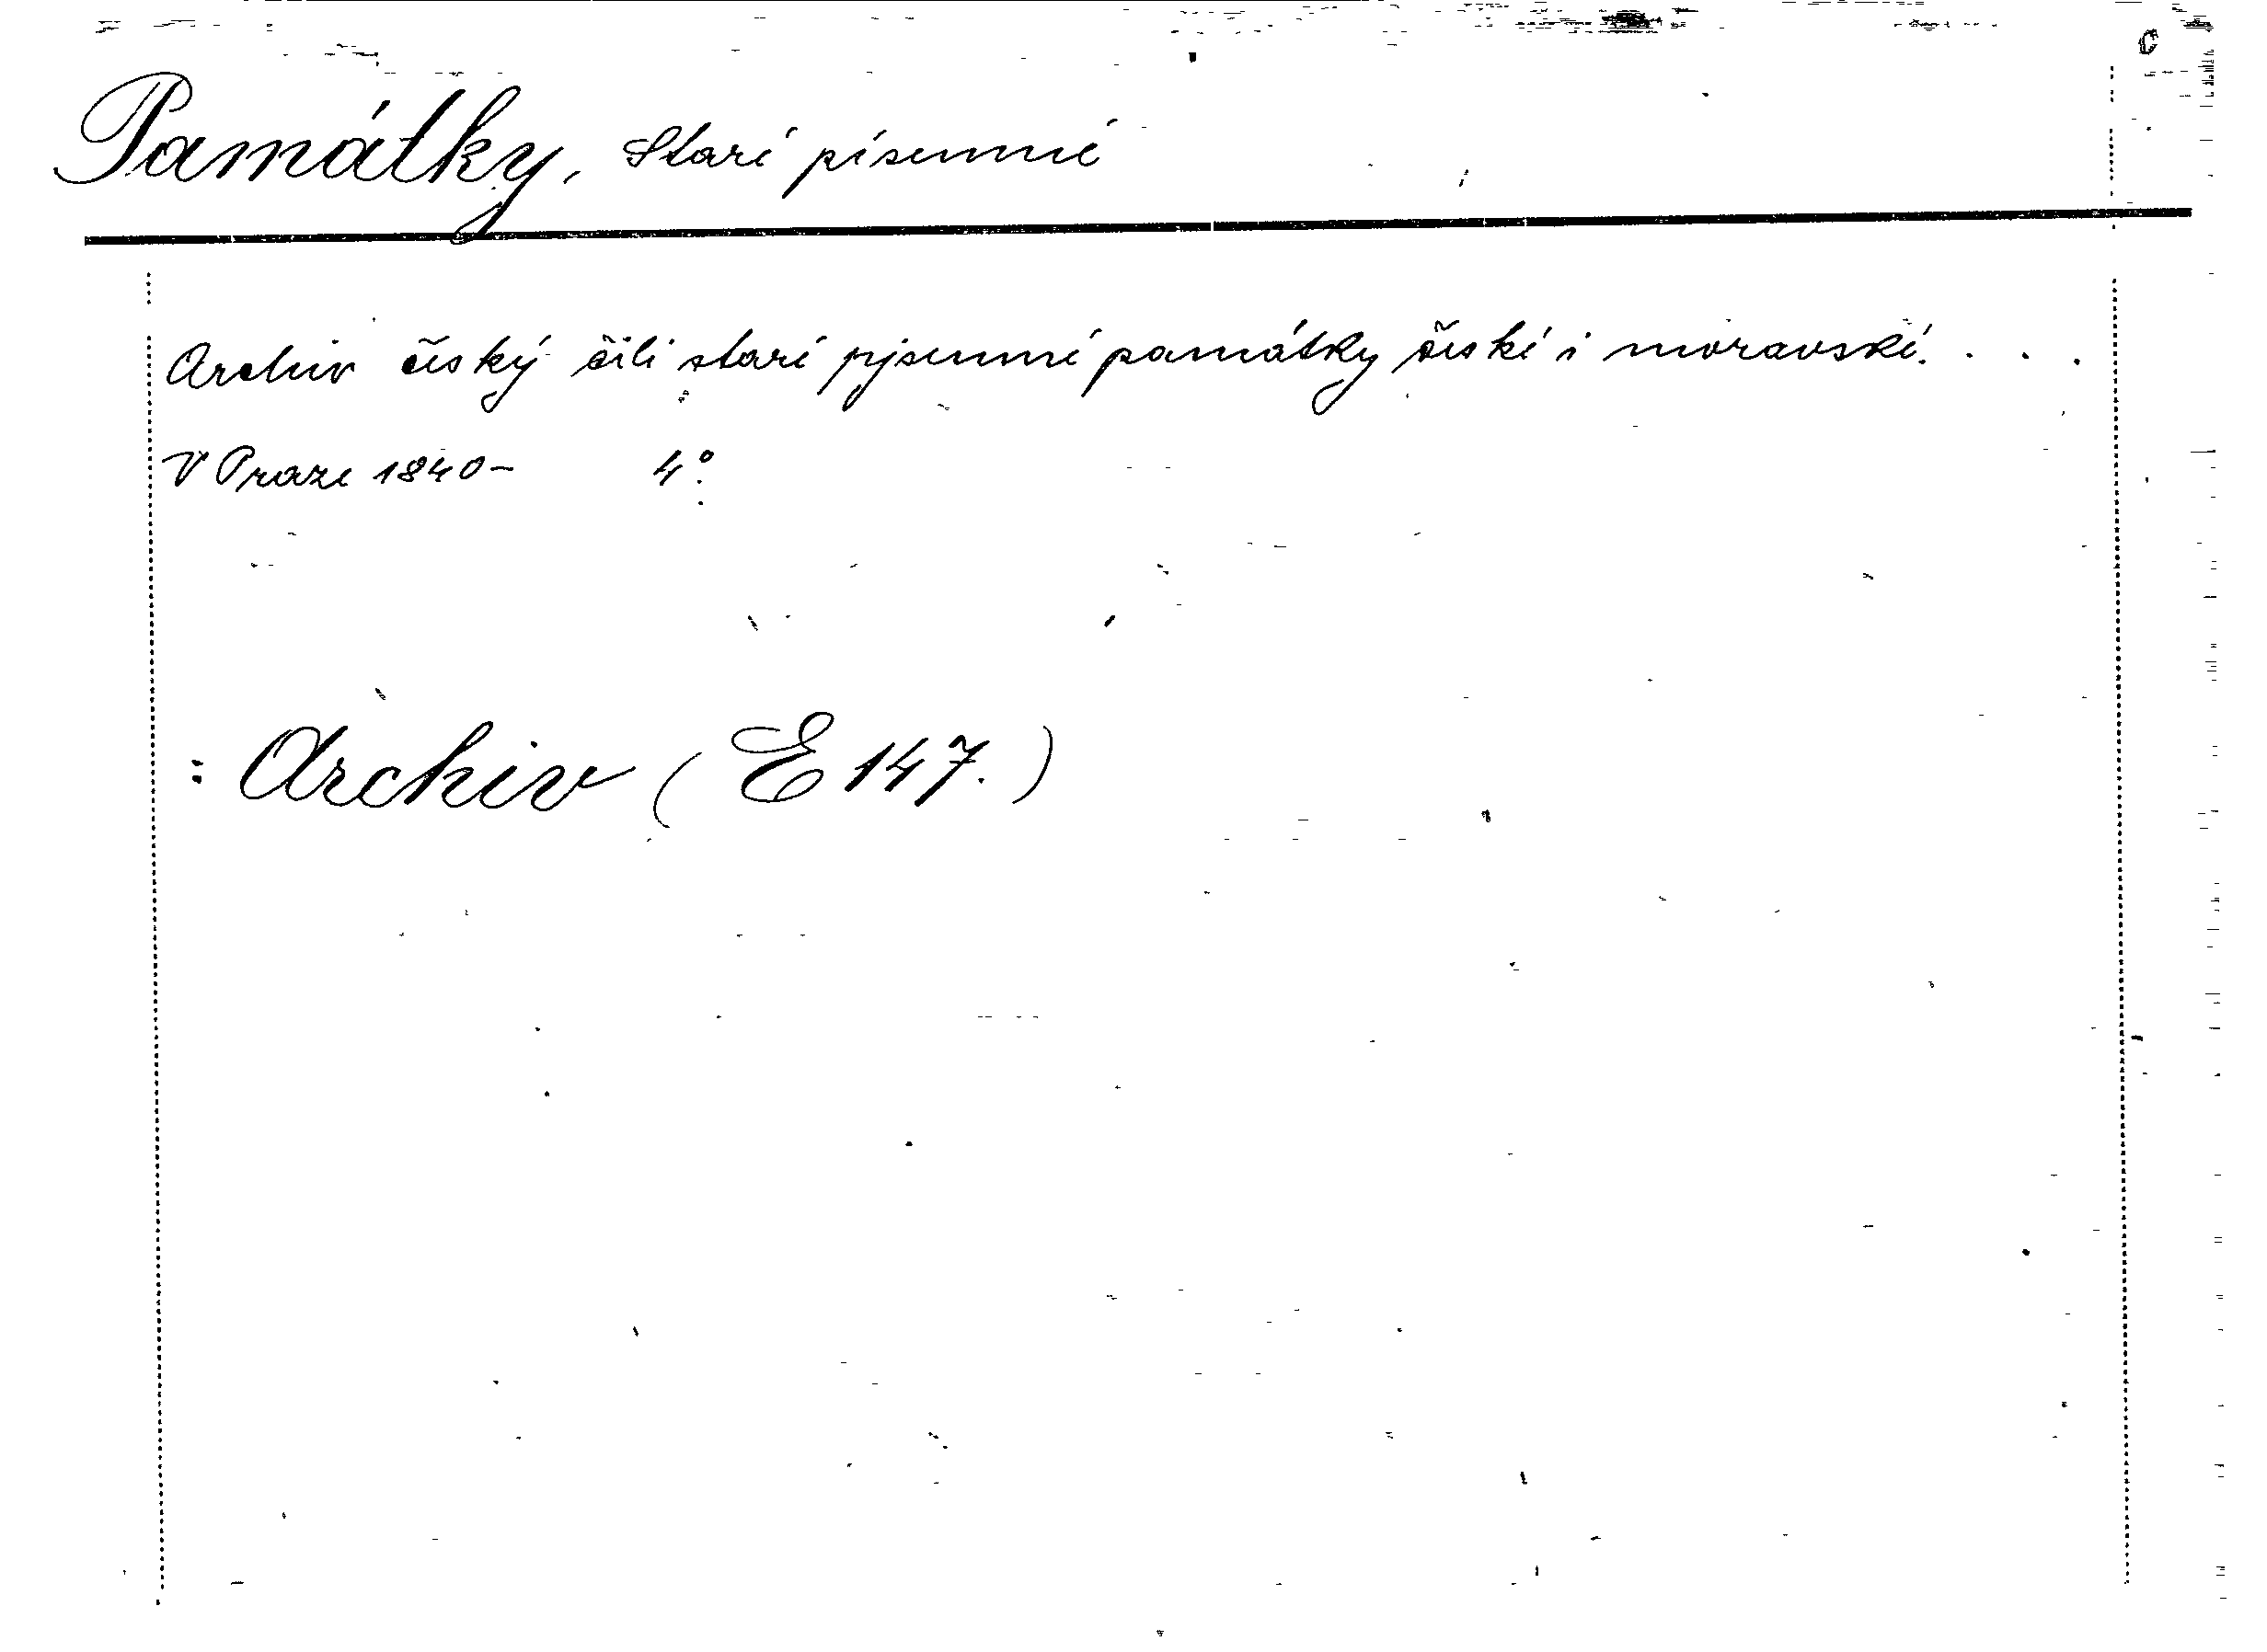 C
Památky, Staré písemné
Archiv český čili staré pjsemné památky české i moravské. . . .
V Praze 1840- 4°.
: Archiv (E 147.)